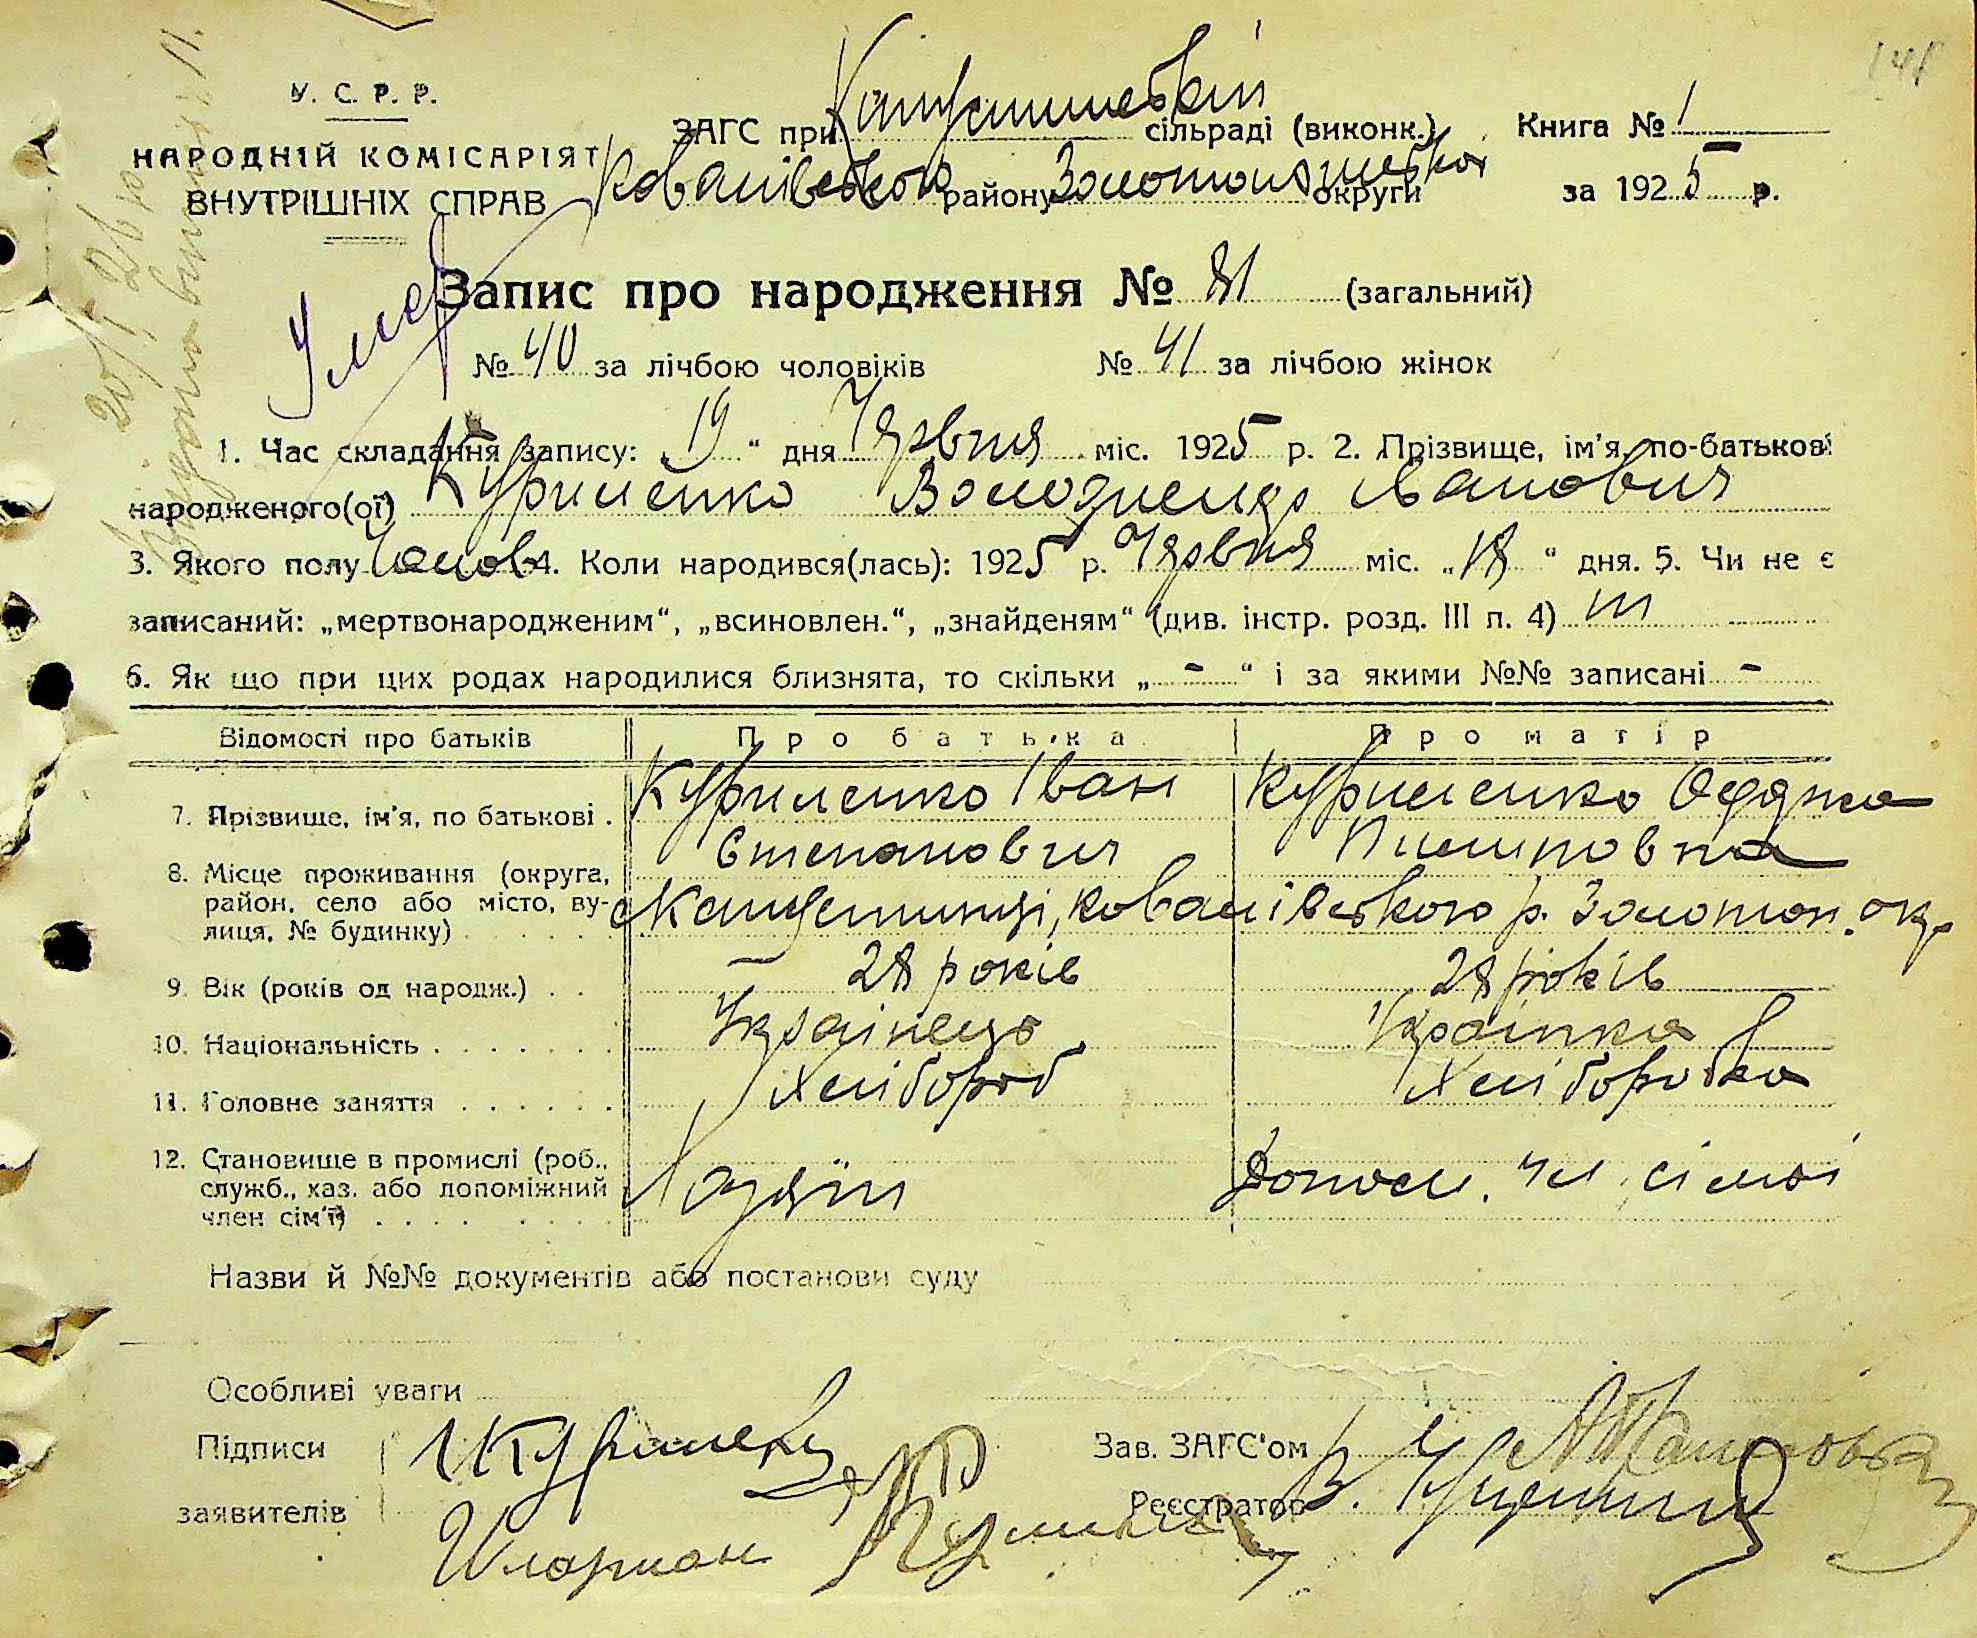 У. С. Р. Р.
НАРОДНІЙ КОМІСАРІЯТ
ВНУТРІШНІХ СПРАВ
ЗАГС при сільраді (виконк.)
району Золотоношської округи
Книга № 1
за 1925 р.
Умер
Запис про народження № 81 (загальний)
№ 40 за лічбою чоловіків № 41 за лічбою жінок
1. Час складання запису: „19“ дня Червня міс. 1925 р. 2. Прізвище, ім'я, по-батькові
народженого(ої) Куриленко Володимеръ Іванович
3. Якого полу Чолов 4. Коли народився(лась): 1925 р. Червня міс. „18“ дня. 5. Чи не є
записаний: „мертвонародженим“, „всиновлен.“, „знайденям“ (див. інстр. розд. III п. 4) ні
6. Як що при цих родах народилися близнята, то скільки „ - “ і за якими №№ записані -
Відомості про батьків Про батька Про матір
7. Прізвище, ім'я, по батькові . Куриленко Іван Степанович Куриленко Пилиповна
8. Місце проживання (округа, район, село або місто, вулиця, № будинку) р. Золотон. окр.
9. Вік (років од народж.) . . 28 років 28 років
10. Національність . . . . . . . Українець Українка
11. Головне заняття . . . . . . Хлібороб Хліборобка
12. Становище в промислі (роб., служб., хаз. або допоміжний член сім'ї) . . . . Хазяїн Допом. чл. сімьі
Назви й №№ документів або постанови суду
Особливі уваги
Підписи Зав. ЗАГС'ом
заявителів Реєстратор